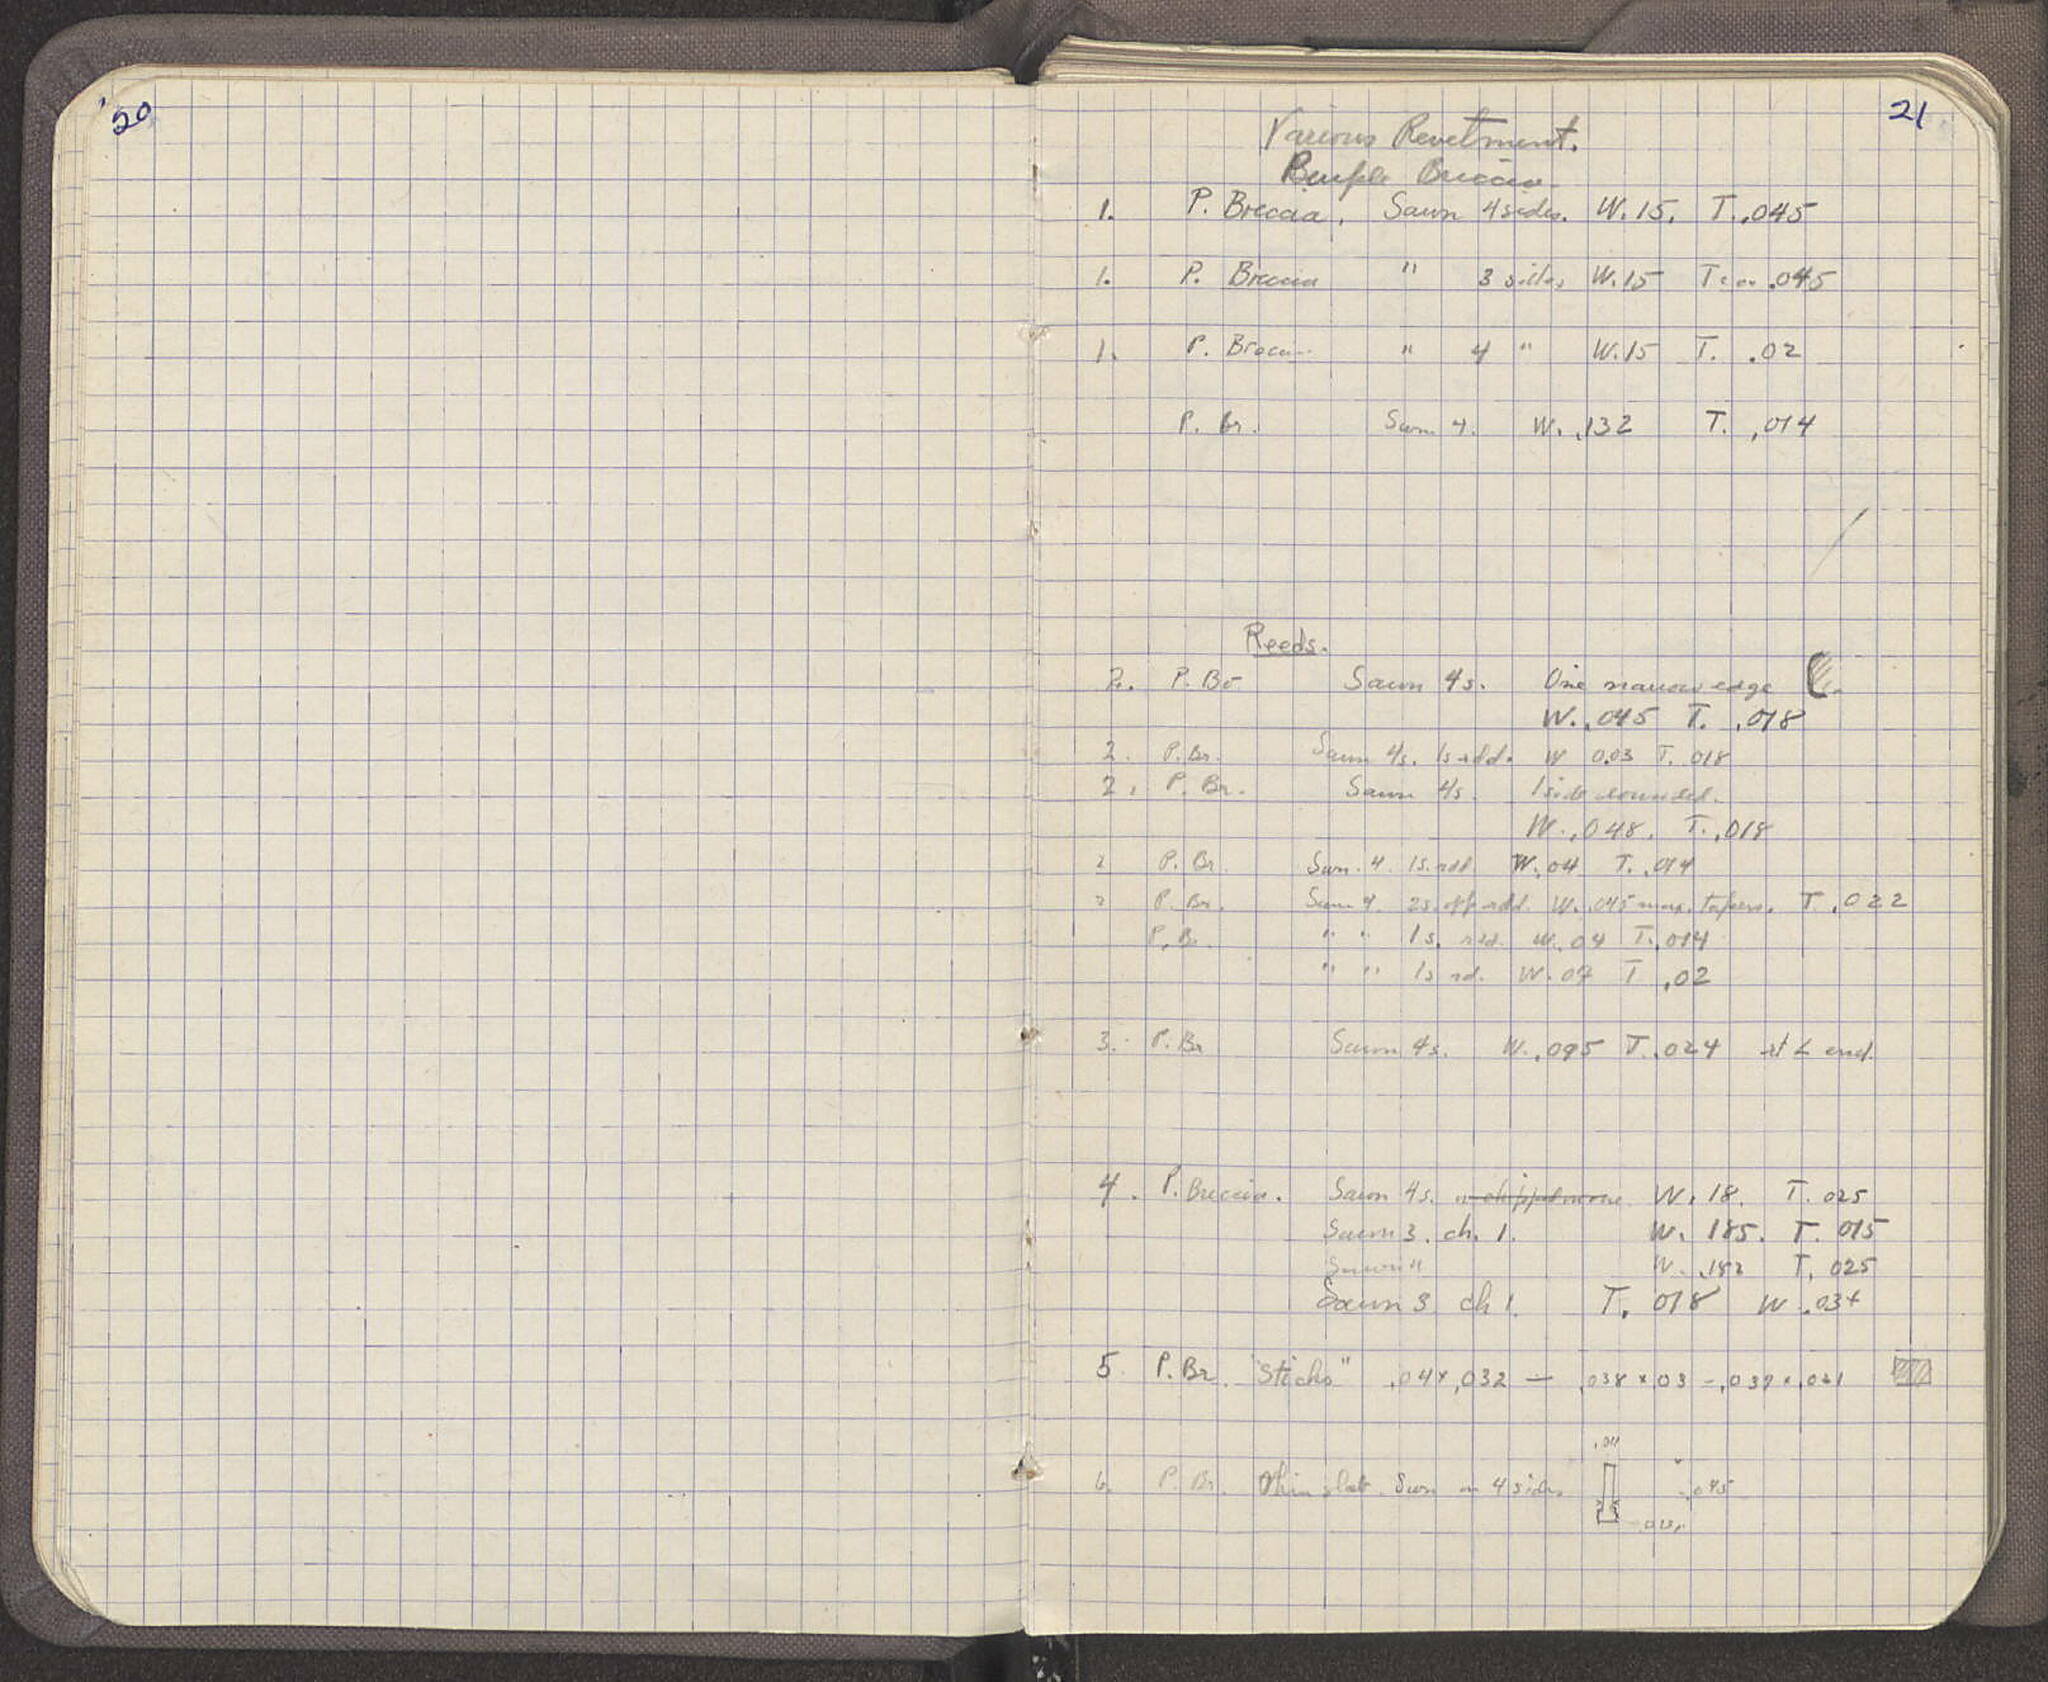 20
21
Various Revetment.
Purple Breccia
1. P. Breccia, Sawn 4 sides. W. 15. T. .045
1. P. Breccia " 3 sides W. 15 T .045
1. P. Breccia " 4 " W. 15 T. .02
P. Br. Sawn 4. W. .132 T. .014
Reeds.
2. P. Br Sawn 4s. One narrow edge
W. .045 T. .018
2. P. Br. Sawn 4s. 1s rdd. W 0.03 T. 018
2. P. Br. Sawn 4s. 1 side rounded.
W. .048. T. .018
2 P. Br. Swn. 4. 1s. rdd. W. .04 T. .014
2 P. Br. Sawn 4. 2s. opp rdd. W. .045 max. tapers. T .022
P. Br. " " 1s. rdd. W. 04 T. .014
" " 1s rd. W. 07 T .02
3. P. Br Sawn 4s. W. .095 T. .024 rt ∠ end.
4. P. Breccia. Sawn 4s. W. 18. T. 025
Sawn 3. ch. 1. W. 185. T. 015
Sawn " W. .182 T. 025
Sawn 3 ch 1. T. 018 W .03+
5. P. Br. "Sticks" .04 x .032 — .038 x .03 – .037 x .021
.04
6. P. Br. Thin slab. Swn on 4 sides .045